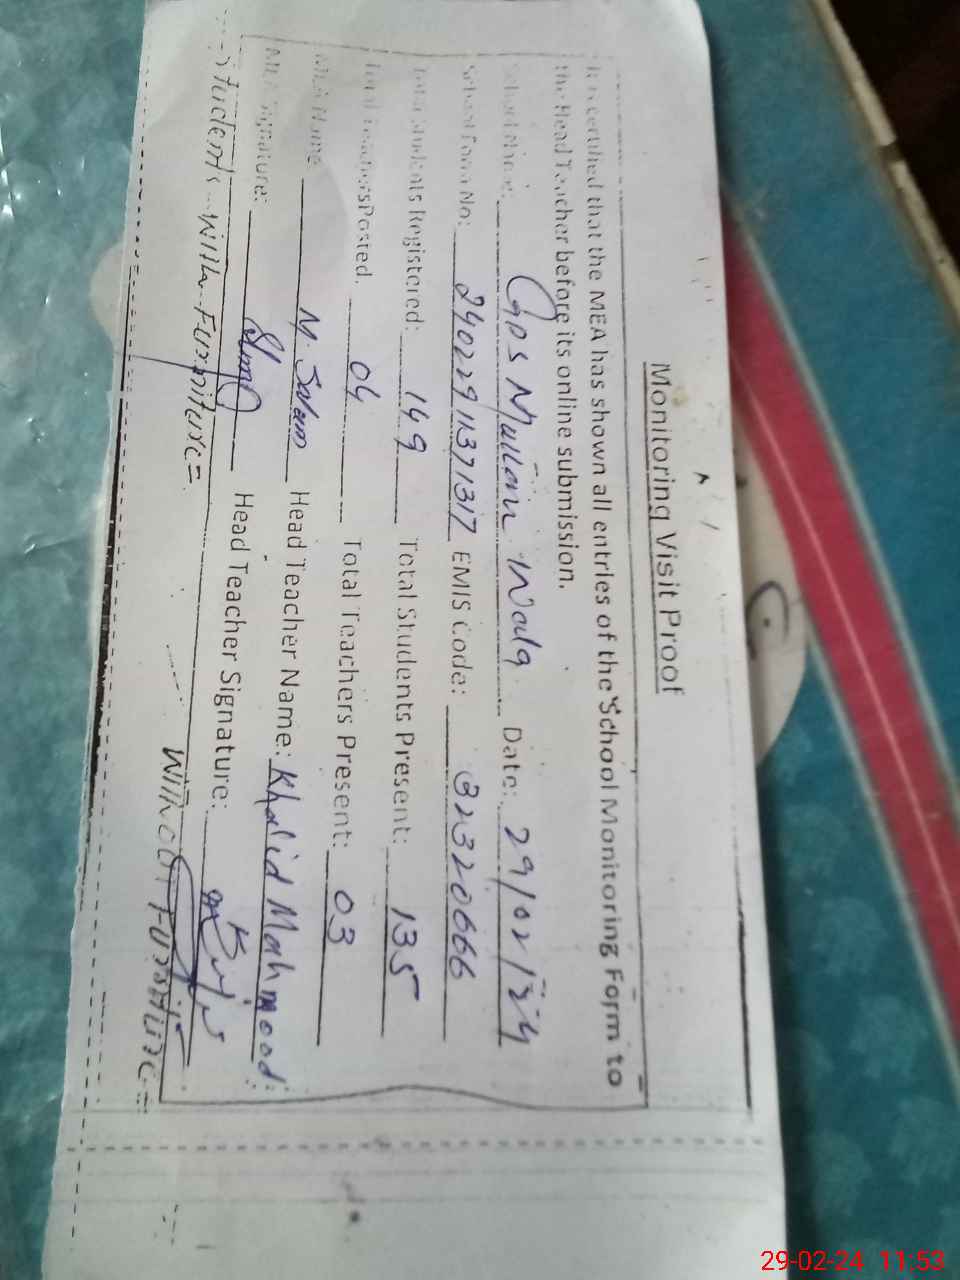 Monitoring Visit Proof
It is certified that the MEA has shown all entries of the School Monitoring Form to
the Head Teacher before its online submission.
School Name: GPS Mullan Wala Date: 29/02/24
School Form No: 24022911371317 EMIS Code: 32320666
Total Students Registered: 149 Total Students Present: 135
Total Teachers Posted. 04 Total Teachers Present: 03
MEA Name M. Salam Head Teacher Name: Khalid Mahmood
MEA Signature: Head Teacher Signature:
Students With Furniture= Without Furniture=
29-02-24 11:53